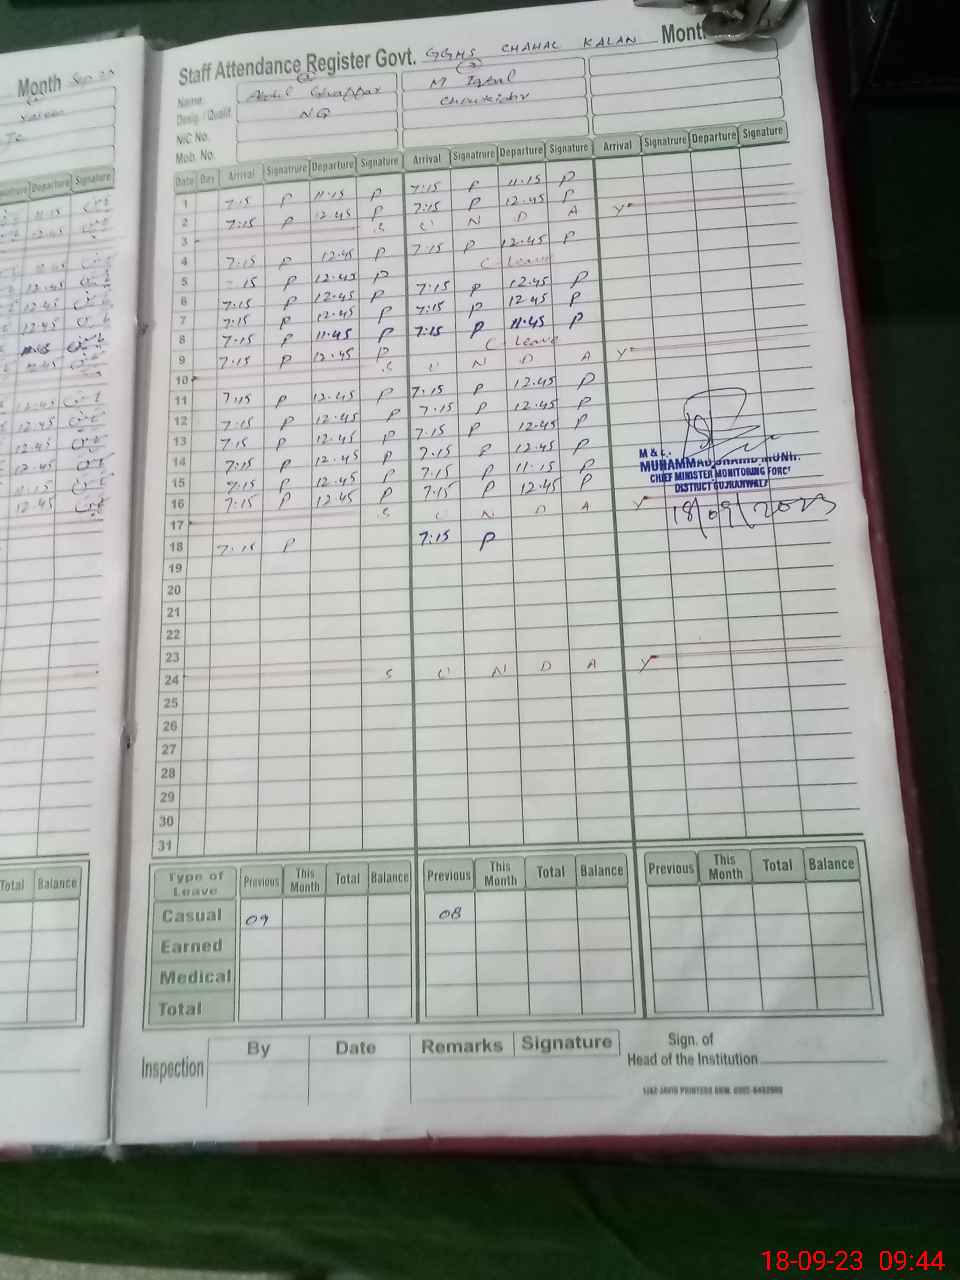 Month Sep 23
Staff Attendance Register Govt. GGHS CHAHAL KALAN Month
Name Abdul Ghaffar M Iqbal
Desig. / Qualif. NQ Chowkidar
NIC No.
Mob. No.
Departure Signature
Date Day Arrival Signatrure Departure Signature Arrival Signatrure Departure Signature Arrival Signatrure Departure Signature
1 7:15 P 11.15 P 7:15 P 11.15 P
2 7:15 P 12.45 P 7:15 P 12.45 P
3 S U N D A Y
4 7:15 P 12.45 P 7:15 P 12.45 P
5 15 P 12.45 P C-Leave
6 7:15 P 12.45 P 7:15 P 12.45 P
7 7:15 P 12.45 P 7:15 P 12.45 P
8 7:15 P 11.45 P 7:15 P 11.45 P
9 7:15 P 12.45 P C-Leave
10 S U N D A Y
11 7:15 P 12.45 P 7:15 P 12.45 P
12 7:15 P 12.45 P 7:15 P 12.45 P
13 7:15 P 12.45 P 7:15 P 12.45 P
14 7:15 P 12.45 P 7:15 P 12.45 P
15 7:15 P 12.45 P 7:15 P 11.15 P
16 7:15 P 12.45 P 7:15 P 12.45 P
17 S U N D A Y
18 7:15 P 7:15 P
19
20
21
22
23
24 S U N D A Y
25
26
27
28
29
30
31
M & E.
MUHAMMAD SHAHID MUNIR
CHIEF MINISTER MONITORING FORCE
DISTRICT GUJRANWALA
18/09/2023
Total Balance
Type of Leave Previous This Month Total Balance Previous This Month Total Balance Previous This Month Total Balance
Casual 09 08
Earned
Medical
Total
Inspection By Date Remarks Signature
Sign. of
Head of the Institution
18-09-23 09:44